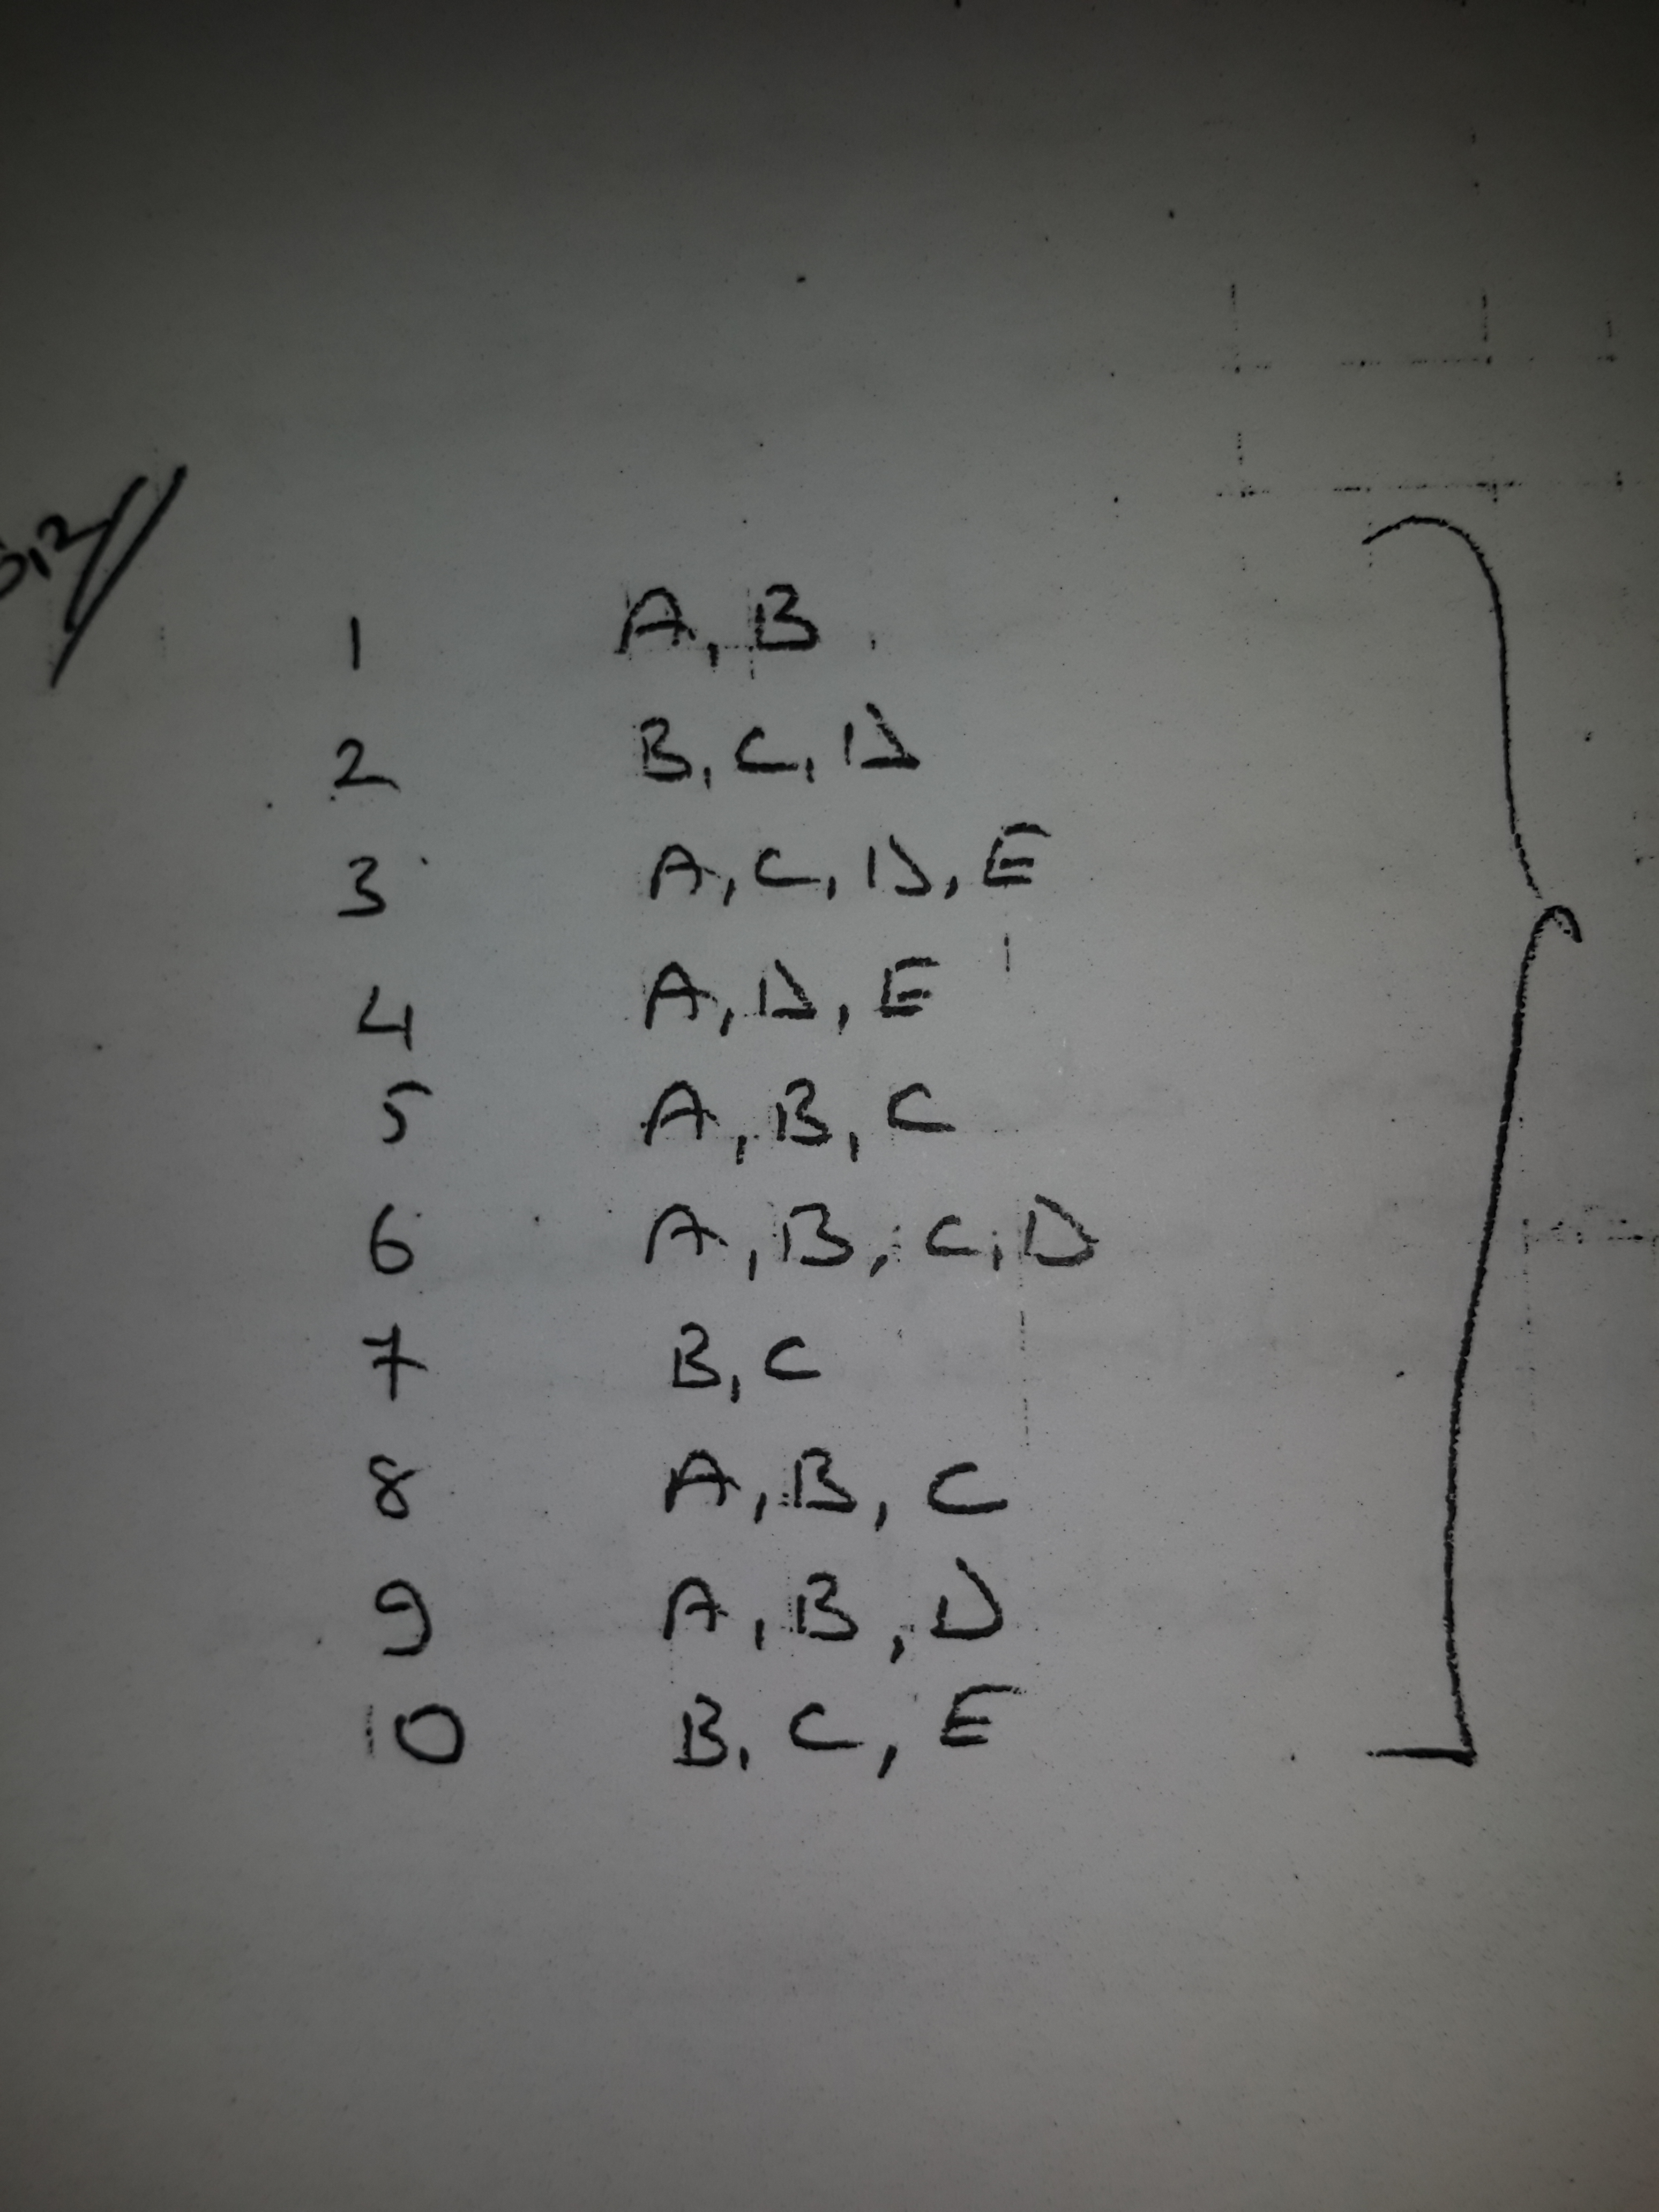 1 A, B
2 B, C, D
3 A, C, D, E
4 A, D, E
5 A, B, C
6 A, B, C, D
7 B, C
8 A, B, C
9 A, B, D
10 B, C, E